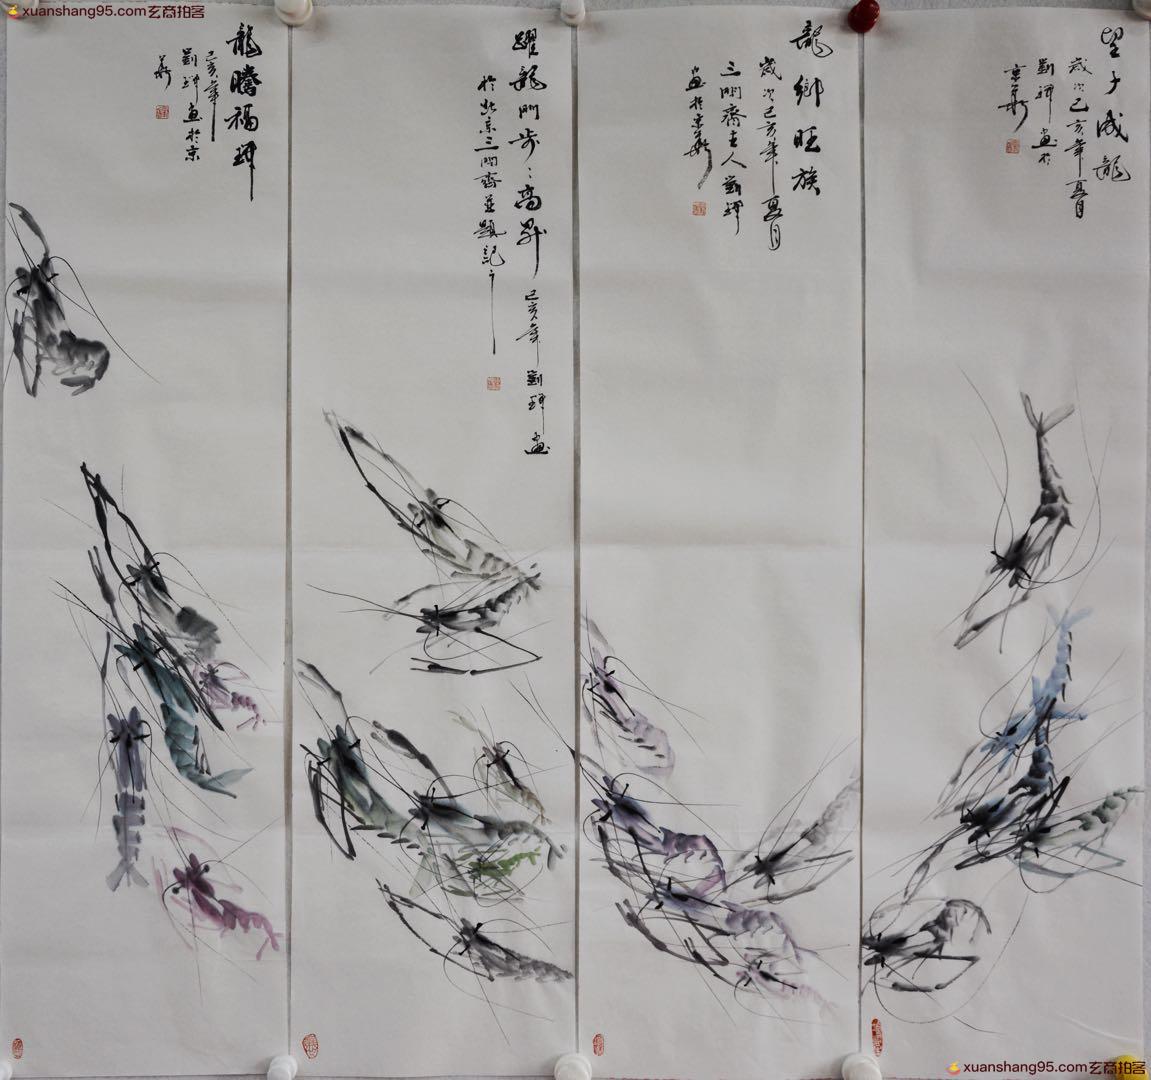 xuanshang95.com玄商拍客
望子成龍
歲次己亥年夏月
劉禪畫於
京華
龍鄉旺族
歲次己亥年夏月
三閒齋主人劉禪
畫於京華
躍龍門步:高昇 己亥年 劉禪畫
於北京三閒齋並題記之
龍騰福祥
己亥年
劉禪畫於京
華
xuanshang95.com玄商拍客